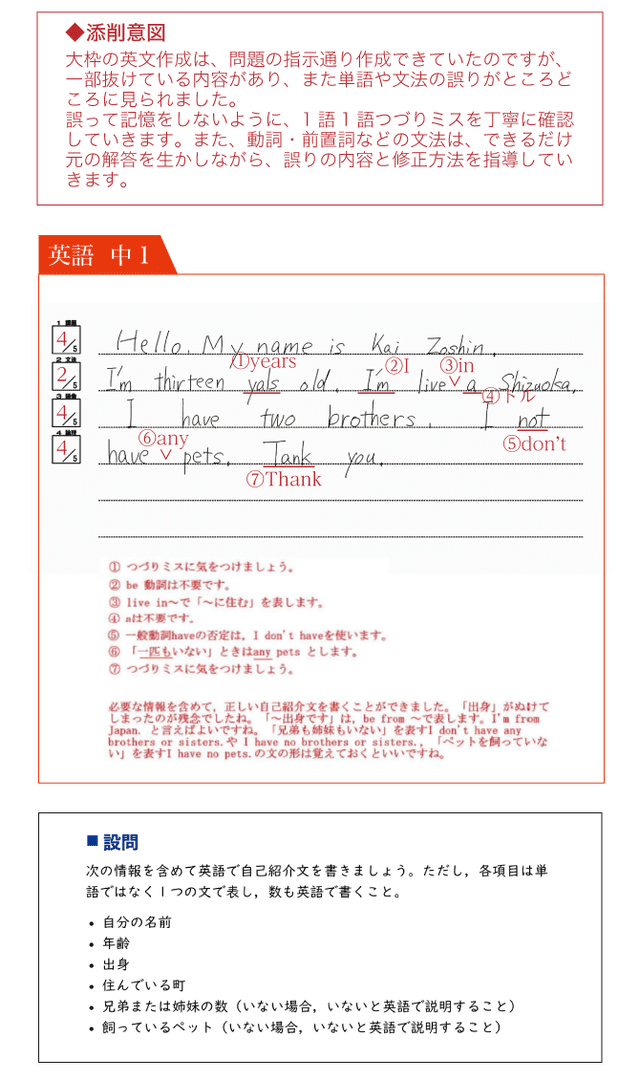 ◆添削意図
大枠の英文作成は、問題の指示通り作成できていたのですが、
一部抜けている内容があり、また単語や文法の誤りがところど
ころに見られました。
誤って記憶をしないように、1語1語つづりミスを丁寧に確認
していきます。また、動詞・前置詞などの文法は、できるだけ
元の解答を生かしながら、誤りの内容と修正方法を指導してい
きます。
英語 中1
4/5
2/5
4/5
4/5
Hello. My name is Kai Zoshin.
①years ②I ③in
I'm thirteen yals old. I'm live a Shizuoka.
④トル
I have two brothers. I not
⑥any ⑤don't
have pets. Tank you.
⑦Thank
① つづりミスに気をつけましょう。
② be 動詞は不要です。
③ live in〜で「〜に住む」を表します。
④ aは不要です。
⑤ 一般動詞haveの否定は，I don't haveを使います。
⑥ 「一匹もいない」ときはany pets とします。
⑦ つづりミスに気をつけましょう。
必要な情報を含めて，正しい自己紹介文を書くことができました。「出身」がぬけて
しまったのが残念でしたね。「〜出身です」は，be from 〜で表します。I'm from
Japan. と言えばよいですね。「兄弟も姉妹もいない」を表すI don't have any
brothers or sisters.や I have no brothers or sisters.，「ペットを飼っていな
い」を表すI have no pets.の文の形は覚えておくといいですね。
■ 設問
次の情報を含めて英語で自己紹介文を書きましょう。ただし，各項目は単
語ではなく1つの文で表し，数も英語で書くこと。
• 自分の名前
• 年齢
• 出身
• 住んでいる町
• 兄弟または姉妹の数（いない場合，いないと英語で説明すること）
• 飼っているペット（いない場合，いないと英語で説明すること）